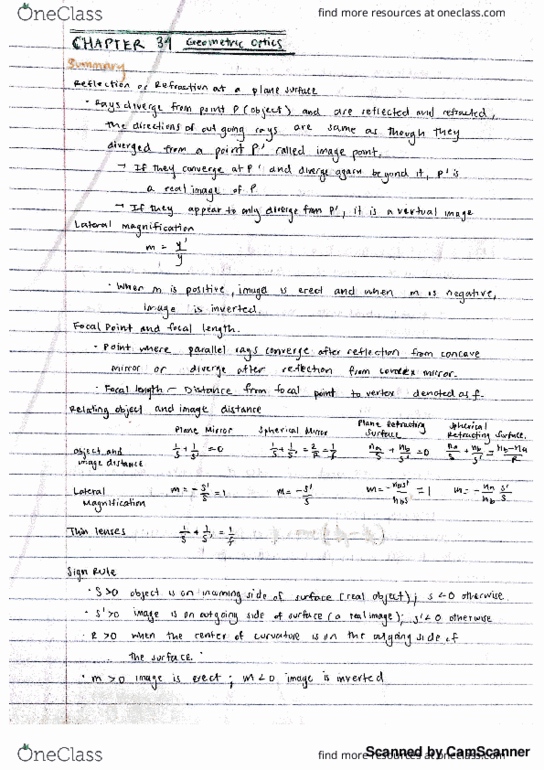 OneClass
find more resources at oneclass.com
CHAPTER 34 Geometric Optics
Summary
Reflection or Refraction at a plane surface
• Rays diverge from point P (object) and are reflected and refracted,
the directions of out going rays are same as though they
diverged from a point P' called image point,
→ If they converge at P' and diverge again beyond it, P' is
a real image of P.
→ If they appear to only diverge from P', it is a vertual image
Lateral magnification
m = y'/y
• When m is positive, image is erect and when m is negative,
image is inverted.
Focal Point and focal length.
• Point where parallel rays converge after reflection from concave
mirror or diverge after reflection from convex mirror.
• Focal length - Distance from focal point to vertex denoted as f.
Relating object and image distance
Plane Mirror Spherical Mirror Plane Refracting Surface Spherical Refracting Surface
object and image distance 1/s + 1/s' = 0 1/s + 1/s' = 2/R = 1/f na/s + nb/s' = 0 na/s + nb/s' = nb-na/R
Lateral Magnification m = -s'/s = 1 m = -s'/s m = -nas'/nbs = 1 m = -na/nb s'/s
Thin lenses 1/s + 1/s' = 1/f
Sign Rule
• S>0 object is on incoming side of surface (real object); s<0 otherwise
• s'>0 image is on outgoing side of surface (a real image); s'<0 otherwise
• R>0 when the center of curvature is on the outgoing side of
the surface.
• m>0 image is erect ; m<0 image is inverted
OneClass
find more resources at oneclass.com
Scanned by CamScanner